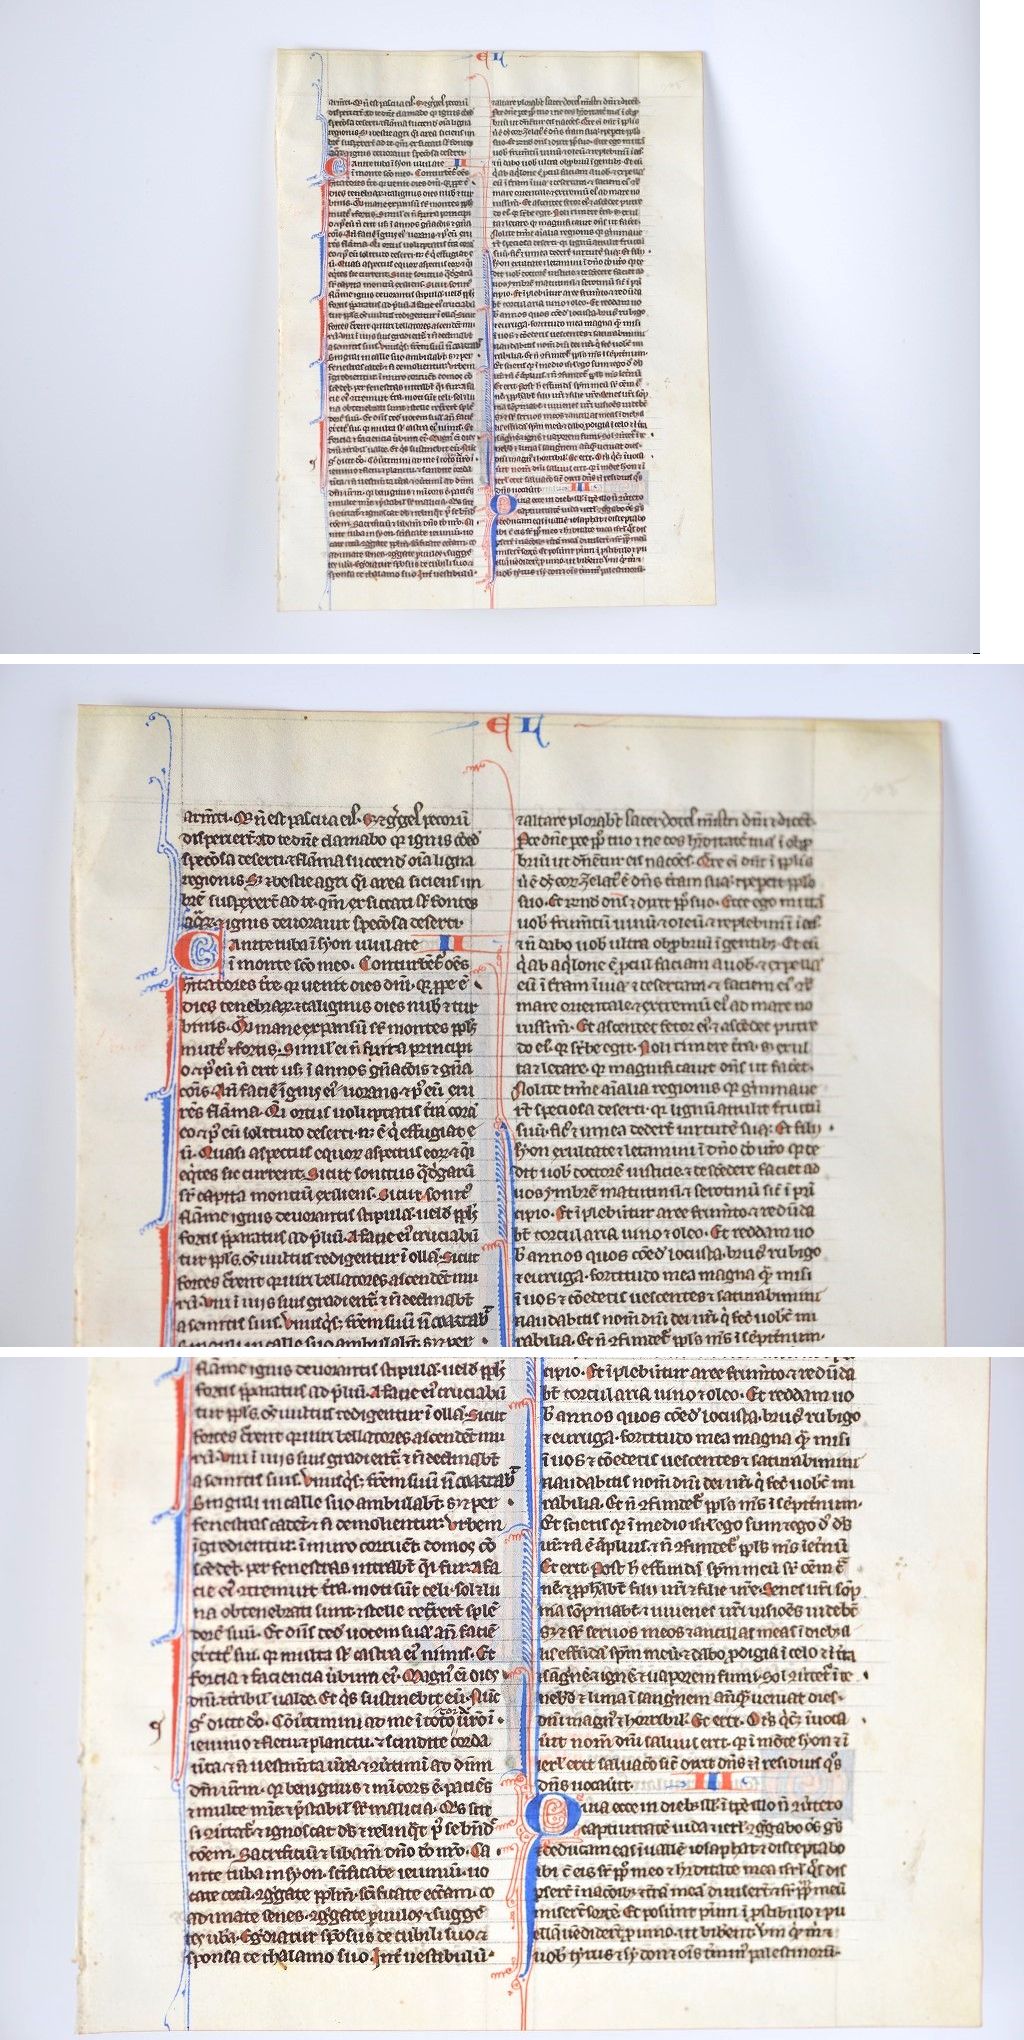 E L
armēti. Qꝛ nō est pascua eis. Sꝫ ⁊ gͤgeſ pecorū
disperierūt. Ad te dn̄e clamabo qꝛ ignis comē
speciosa deserti ⁊ flāma succendit oīa ligna
regionis. Sꝫ ⁊ bestie agri qͣsi area sitiens im
brē suspexerūt ad te. qm̄ exsiccati sūt fontes
aqͣꝝ ⁊ ignis deuorauit speciosa deserti.
Canite tuba ī syon ululate II
ī monte scō meo. Conturbent̄ oēs
hītatores tre qꝛ uenit dies dn̄i. qꝛ ꝓpe ē
dies tenebraꝝ ⁊ caliginis dies nub ⁊ tur
binis. Qͣsi mane expansū sr̄ montes ppls
mult̄ ⁊ fortis. Similis ei nō fuit a principi
o ⁊ p̄ eū nō erit usqꝫ ī annos gn̄acōis ⁊ gn̄a
cōis. An̄ faciē ei ignis uorans ⁊ p̄ eū exu
rēs flāma. Qͣsi ortus uoluptatis tr̄a corā
eo ⁊ p̄ eū solitudo deserti. neqꝫ ē qͥ effugiat e
ū. Quasi aspectus equoꝝ aspectus eoꝝ ⁊ qͣsi
eqͥtes sic current. Sicut sonitus qͣdͥgarū
sr̄ capita montiū exiliens. Sicut sonitꝰ
flāme ignis deuorantis stipulā. uelud ppls
fortis p̄paratus ad p̄liū. A facie eiꝰ cruciabū
tur ppls. oēs uultus redigentur ī ollā. Sicut
fortes current qͣsi uiri bellatores ascendēt mu
rū. Viri ī uiis suis gradient̄ ⁊ nō declinabūt
a semitis suis. Vnusqͥsqꝫ frēm suū nō coartab̄
singuli in calle suo ambulabūt. Sꝫ ⁊ per
fenestras cadēt ⁊ nō demolientur. Vrbem
īgredientur. ī muro current. domos cō
scēdēt. per fenestras intrabūt qͣsi fur. A fa
cie eiꝰ ↄtremuit tra. moti sūt celi. sol ⁊ lu
na obtenebrati sunt ⁊ stelle retxerūt splē
dorē suū. Et dn̄s ded uocem suā an̄ faciē
exercitꝰ sui. qꝛ multa sūt castra eiꝰ nimis. Et
fortia ⁊ faciencia ūbum eiꝰ. Magnꝰ eī dies
dn̄i ⁊ tribil ualde. Et qͥs sustinebit eū. Nūc
gͦ dicit dn̄s. Cōūtimini ad me ī toto corde ūro ī
ieiunio ⁊ fletu ⁊ planctu. ⁊ scindite corda
ūra ⁊ nō uestimta ūra. ⁊ ↄūtimini ad dn̄m
dm̄ ūrm. qꝛ benignus ⁊ mīcors ē. patiēs
⁊ multe mīe ⁊ p̄stabil sr̄ malicia. Qͥs scit
si ↄūtat̄ ⁊ ignoscat ds̄ ⁊ relinqͣt p̄ se bn̄d
cōem. Sacrificiū ⁊ libam̄ dn̄o do ūro. Ca
nite tuba in syon. sc̄ificate ieiuniū. uo
cate cetū. ↄgregate pplm̄. sc̄ificate ecctam. co
adunate senes. ↄgregate puulos ⁊ sugge
tes ubā. Egrediatur sponsus de cubili suo ⁊
sponsa de thalamo suo. Int̄ uestibulū
⁊ altare plorabūt sacerdotes mīstri dn̄i ⁊ dicēt.
Parce dn̄e parce pp̄lo tuo ⁊ ne des hꝰditatē tuā ī obꝓ
briū ut dn̄entur eis nacōes. Qͣre dicūt ī pplis
ubi ē ds̄ eoꝝ. Zelatꝰ ē dn̄s tr̄am suā. ⁊ peperc pplo
suo. Et rn̄d dn̄s ⁊ dixit pplo suo. Ecce ego mittā
uob frumtū uinū ⁊ oleū ⁊ replebimī ī eis.
⁊ nō dabo uos ultra obꝓbriū ī gentibꝫ. Et eū
qͥ ab aqͥlone ē ꝓcul faciam a uob. ⁊ expellā
eū ī tr̄am īuiā ⁊ desertam. ⁊ faciem eiꝰ cont̄
mare orientale ⁊ extremū eiꝰ ad mare no
uissim̄. Et ascendet fetor eiꝰ. ⁊ ascēdet putre
do eiꝰ. qꝛ suꝑbe egit. Noli timere tra. exul
ta ⁊ letare. qm̄ magnificauit dn̄s ut facet̄.
Nolite timere aīalia regionis qꝛ gͥminaue
rūt speciosa deserti. qꝛ lignū attulit fructū
suū. ficꝰ ⁊ uinea dederūt uirtutē suā. Et filii
syon exultate ⁊ letamini ī dn̄o do ūro qꝛ de
dit uob doctorē iusticie. ⁊ descēdere faciet ad
uos ymbrē matutinū ⁊ serotinū sicut ī pͥn
cipio. Et īplebūtur aree frumto. ⁊ redūda
būt torcularia uino ⁊ oleo. Et reddam uo
b annos quos comed locusta. brucꝰ rubigo
⁊ euruga. fortitudo mea magna qͣm misi
ī uos ⁊ comedetis uescentes ⁊ saturabimini
⁊ laudabitis nom̄ dn̄i dei ūri. qͥ fec uobcū mi
rabilia. Et nō ↄfundet̄ ppls ms̄ ī sempiternum.
Et scietis qꝛ ī medio isrl ego sum. ⁊ ego dn̄s ds̄
uester ⁊ nō ē amplius. ⁊ nō ↄfundet̄ ppls ms̄ ī eternū
Et erit. Post h̄ effundā spm̄ meū sr̄ oēm c
nē. ⁊ ꝓphabūt filii uri ⁊ filie ūre. Senes uri sōp
nia sompniabūt ⁊ iuuenes uri uisiōes uidebūt
Sꝫ ⁊ sr̄ seruos meos ⁊ ancillas meas ī diebꝫ il
lis effūdā spm̄ meū. ⁊ dabo ꝓdigia ī celo ⁊ ī tra
sāgͥnē ⁊ ignē ⁊ uaporem fumi. Sol ↄūtet̄ ī te
nebras ⁊ luna ī sangͥnem anqͣm ueniat dies
dn̄i magnꝰ ⁊ horribil. Et erit. Oīs qͥ īuoca
ūit nom̄ dn̄i saluus erit. qꝛ ī mōte syon ⁊ ī
ierl̄ erit saluacō sic dixit dn̄s. ⁊ ī residuis qͦs
dn̄s uocauit. III
Quia ecce in diebꝫ ill ī tꝑe illo cū ↄūtero
captiuitatē iuda ⁊ ierl̄. ↄgregabo oēs gn̄s
⁊ deducam eas ī uallē iosaphat. ⁊ disceptabo
ibi cū eis sr̄ pplo meo ⁊ hꝰditate mea isrl. qͦs dis
ꝑserūt ī nacōibꝫ. ⁊ tr̄a meā diuiserūt. ⁊ sr̄ pplm̄ meū
miserūt sortē. Et posuerūt puerū ī ꝓstibulo. ⁊ pu
ellā uēdiderūt ꝓ uino. ut bibent̄. Vm̄ qͥd m̄ ⁊
uob tyrus ⁊ sydon ⁊ oīs t̄minꝰ palestinorū.